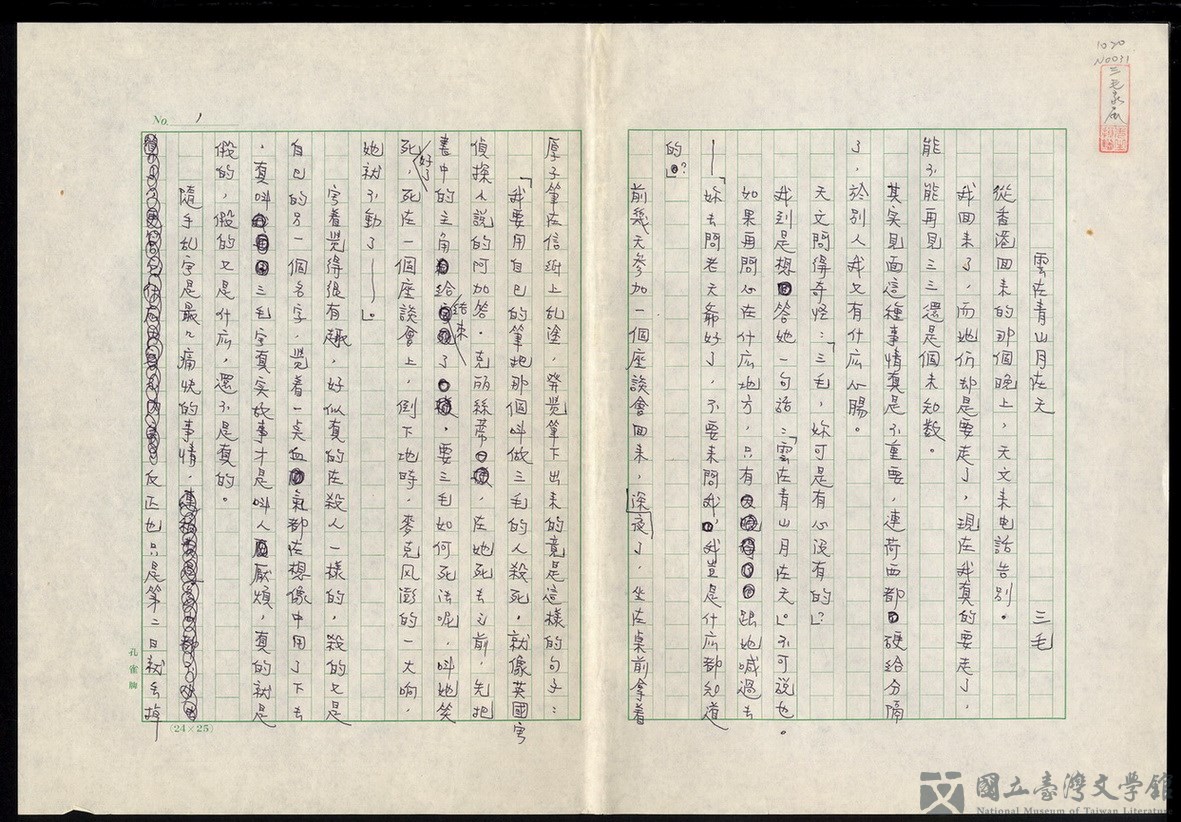 1020
N0031
三毛
雲在青山月在天
三毛
從香港回來的那個晚上，天文來电話告別。
我回來了，而她仍却是要走了，現在我真的要走了，
能不能再見三三還是個未知数。
其实見面這種事情真是不重要，連荷西都硬給分隔
了，於別人我又有什広心腸。
天文問得奇怪：「三毛，妳可是有心没有的？」
我到是想答她一句話：「雲在青山月在天」。不可説也。
如果再問心在什広地方，只有跟她喊過去
——妳去問老天爺好了，不要来問我，我豈是什広都知道
的。」？
前幾天参加一個座談會回来，深夜了，坐在桌前拿着
厚子筆在信紙上乱塗，発覚筆下出来的竟是這樣的句子：
「我要用自己的筆把那個叫做三毛的人殺死，就像英國写
偵探人説的阿加答·克丽絲蒂，在她死去之前，先把
書中的主角給結束了，要三毛如何死法呢，叫她笑
死好了，死在一個座談會上，倒下地時，麥克风澎的一大响，
她就不動了——」。
写着覚得很有趣，好似真的在殺人一樣的，殺的又是
自己的另一個名字，覚着一桌血氣都在想像中用了下去
，真叫三毛写真実故事才是叫人厭煩，真的就是
假的，假的又是什広，還不是真的。
隨手乱写是最最痛快的事情，
反正也只是第二日就丢掉
No. 1
孔雀牌
(24×25)
國立臺灣文學館
National Museum of Taiwan Literature